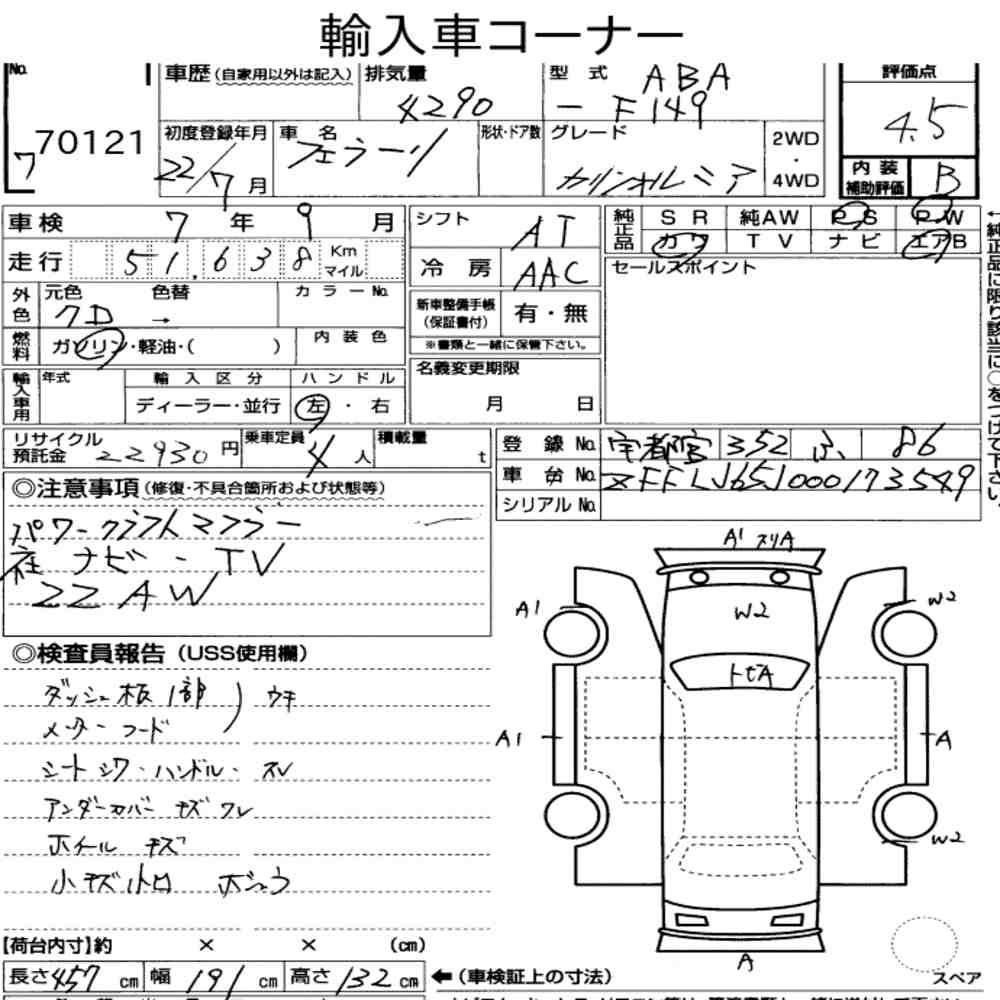 輸入車コーナー
No. 車歴 (自家用以外は記入) 排気量 型式 ABA 評価点
4290 - F149 4.5
7 70121 初度登録年月 車名 形状・ドア数 グレード 2WD・4WD
22/7月 フェラーリ カリフォルニア 内装補助評価 B
車検 7年 9月 シフト AT 純正品 SR 純AW PS PW
カワ TV ナビ エアB
走行 51.638 Km マイル 冷房 AAC セールスポイント
外色 元色 色替 カラーNo. 新車整備手帳(保証書付) 有・無
クD →
燃料 ガソリン・軽油・( ) 内装色 ※書類と一緒に保管下さい。
輸入車用 年式 輸入区分 ハンドル 名義変更期限
ディーラー・並行 左・右 月 日
リサイクル預託金 22930円 乗車定員 4人 積載量 t 登録No. 宇都宮 352 ふ 86
車台No. ZFFLJ65J000173549
シリアルNo.
←純正品に限り該当に○をつけて下さい。
◎注意事項 (修復・不具合箇所および状態等)
パワークラフトマフラー
社ナビ・TV
22AW
◎検査員報告 (USS使用欄)
ダッシュ板1部 ) ウキ
メーターフード
シートシワ・ハンドル・スレ
アンダーカバーキズワレ
ホイールキズ
小キズ小凹 ホシュウ
A1 スリA
A1 W2 W2
トビA
A1 A
W2
A
【荷台内寸】約 × × (cm)
長さ457cm 幅191cm 高さ132cm ←(車検証上の寸法) スペア